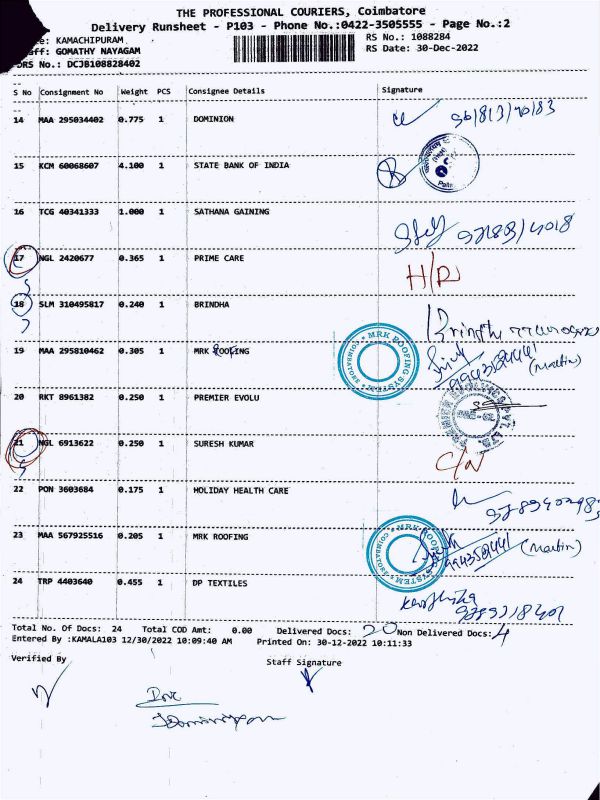 THE PROFESSIONAL COURIERS, Coimbatore
Delivery Runsheet - P103 - Phone No.:0422-3505555 - Page No.:2
KAMACHIPURAM RS No.: 1088284
GOMATHY NAYAGAM RS Date: 30-Dec-2022
DRS No.: DCJB108828402
S No Consignment No Weight PCS Consignee Details Signature
14 MAA 295034402 0.775 1 DOMINION
15 KCM 60068607 4.100 1 STATE BANK OF INDIA
16 TCG 40341333 1.000 1 SATHANA GAINING
17 NGL 2420677 0.365 1 PRIME CARE
18 SLM 310495817 0.240 1 BRINDHA
19 MAA 295810462 0.305 1 MRK ROOFING MRK ROOFING SYSTEM COIMBATORE (Martin)
20 RKT 8961382 0.250 1 PREMIER EVOLU
21 NGL 6913622 0.250 1 SURESH KUMAR
22 PON 3603684 0.175 1 HOLIDAY HEALTH CARE
23 MAA 567925516 0.205 1 MRK ROOFING MRK ROOFING SYSTEM COIMBATORE (Martin)
24 TRP 4403640 0.455 1 DP TEXTILES
Total No. Of Docs: 24 Total COD Amt: 0.00 Delivered Docs: 20 Non Delivered Docs: 4
Entered By :KAMALA103 12/30/2022 10:09:40 AM Printed On: 30-12-2022 10:11:33
Verified By Staff Signature